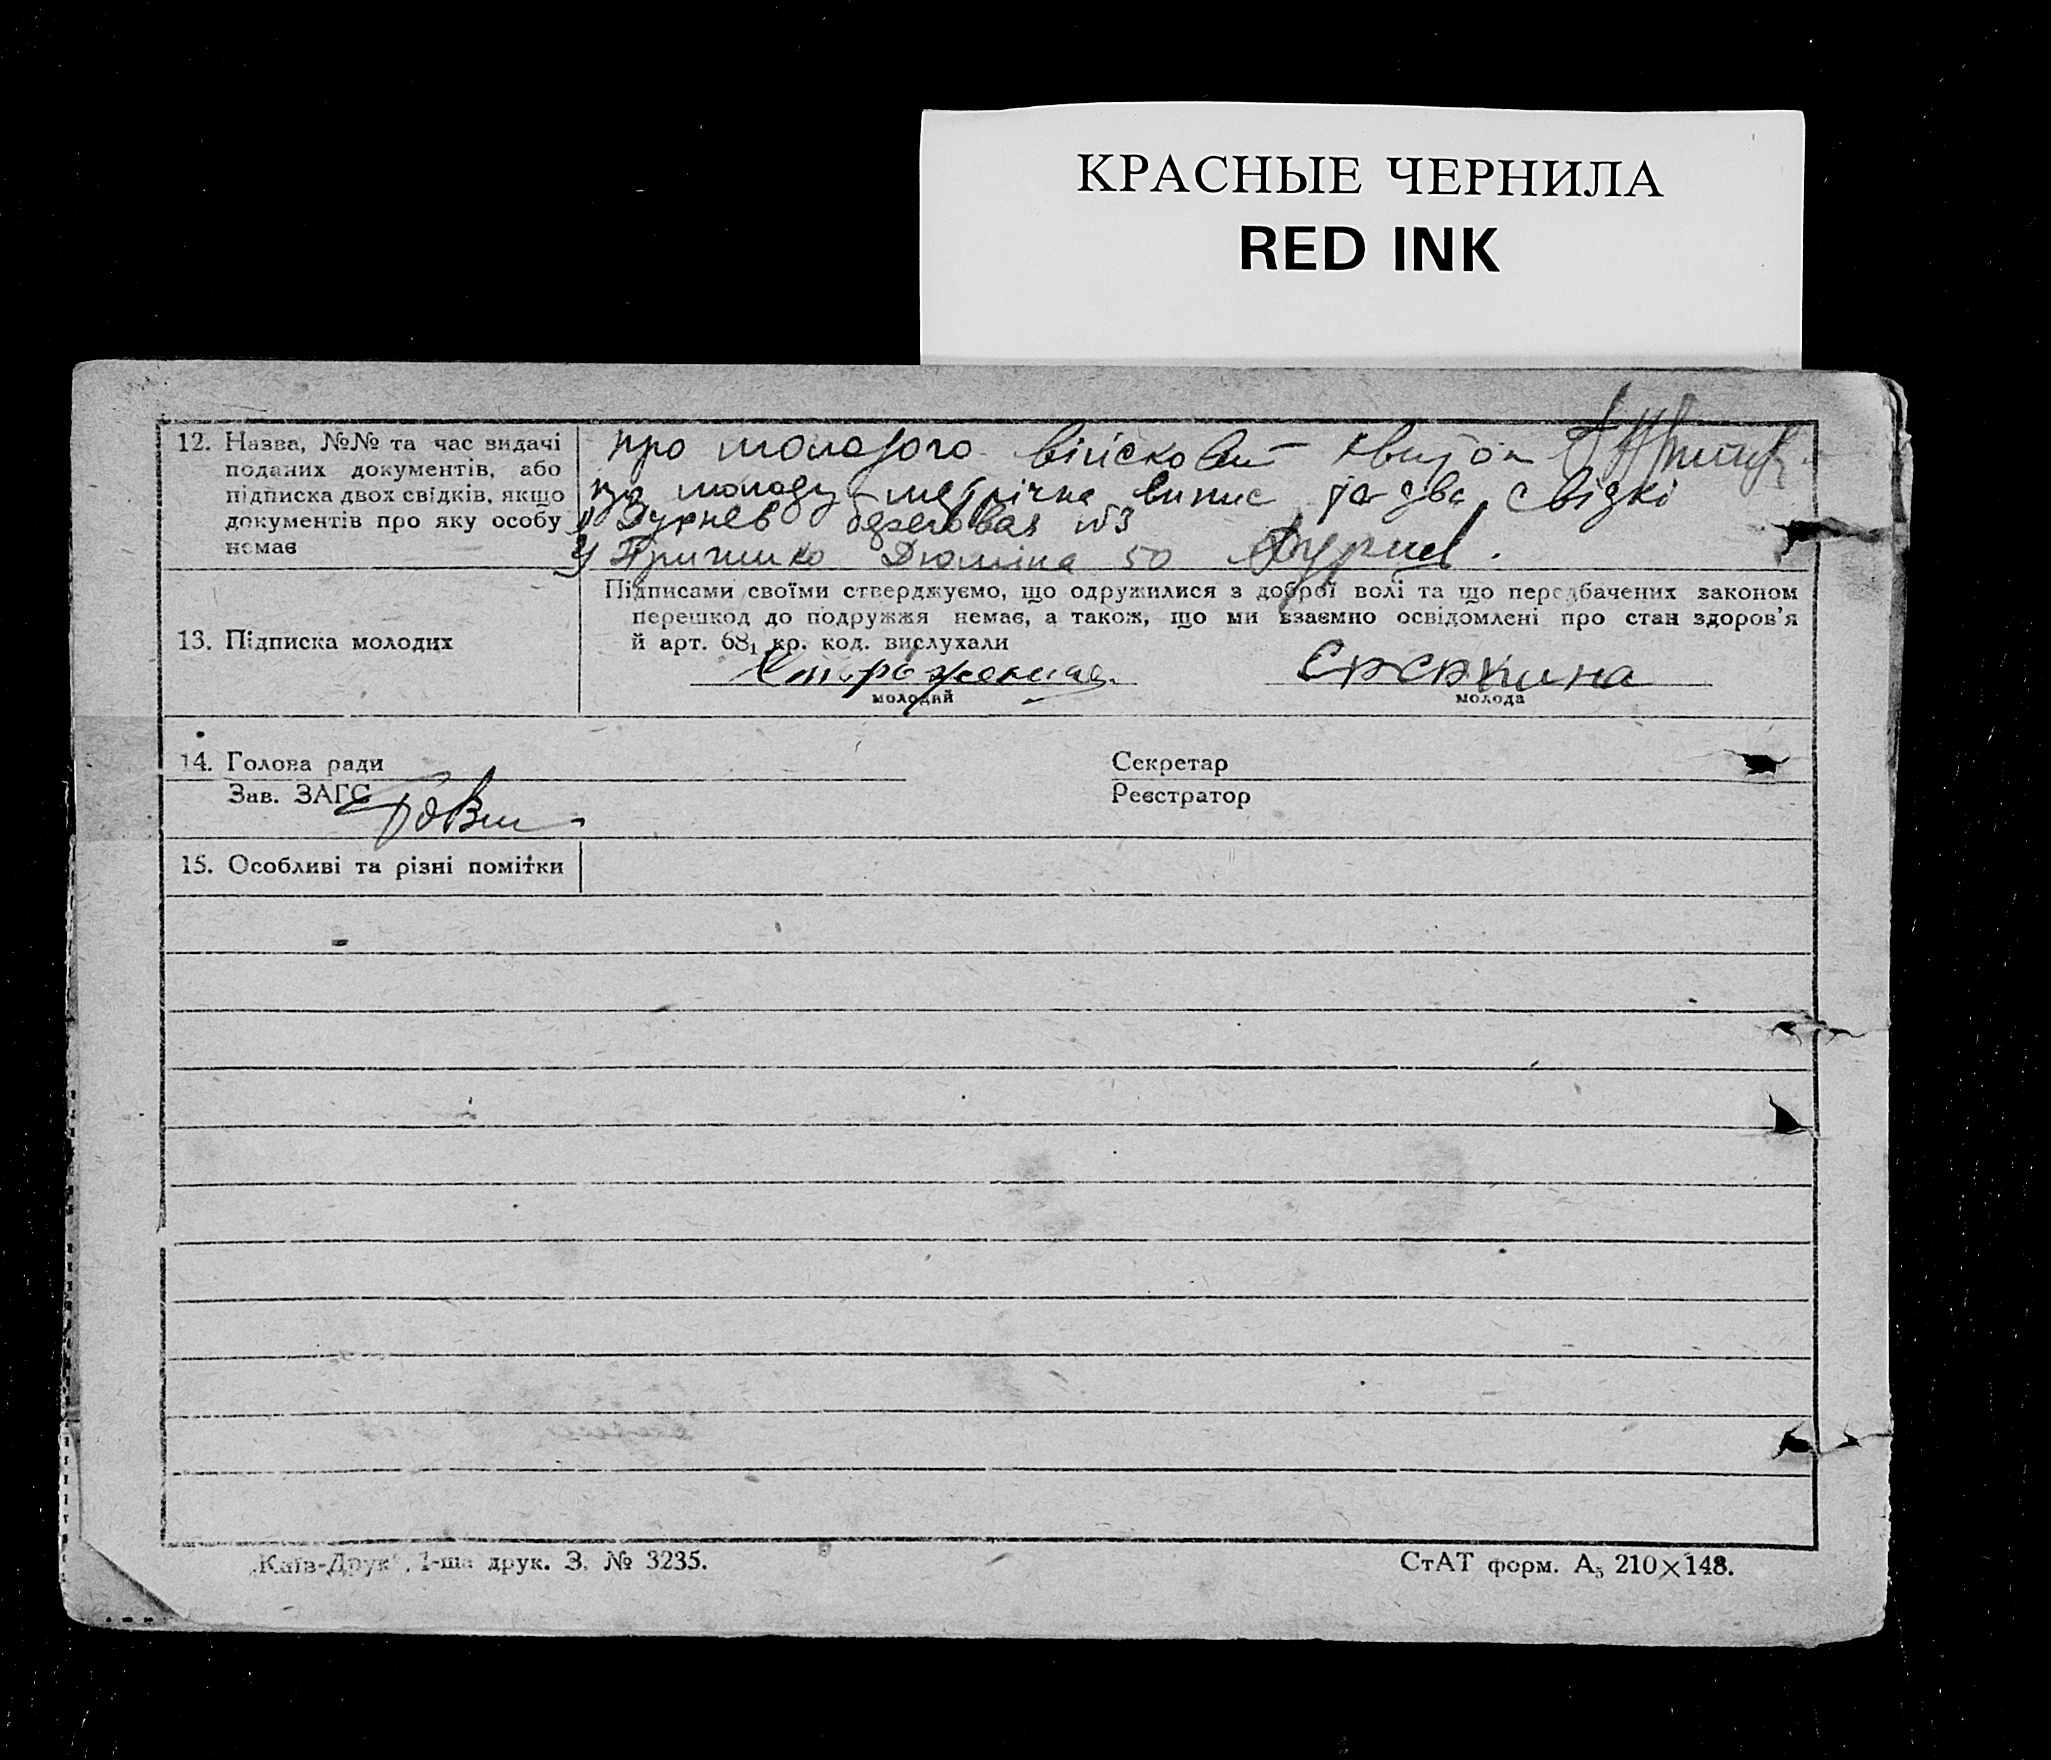 КРАСНЫЕ ЧЕРНИЛА
RED INK
12. Назва, №№ та час видачі
поданих документів, або
підписка двох свідків, якщо
документів про яку особу
немає
про молодого військовий квиток
про молоду метрічна випис та два свідкі
1) Дурнев Береговая №3
2) Гришко Дюміна 50 Дурнев.
13. Підписка молодих
Підписами своїми стверджуємо, що одружилися з доброї волі та що передбачених законом
перешкод до подружжя немає, а також, що ми взаємно освідомлені про стан здоров'я
й арт. 68₁ кр. код. вислухали
Сєрєкина
молодий
молода
14. Голова ради
Секретар
Зав. ЗАГС
Реєстратор
15. Особливі та різні помітки
„Київ-Друк“, 1-ша друк. З. № 3235.
СтАТ форм. А₅ 210×148.